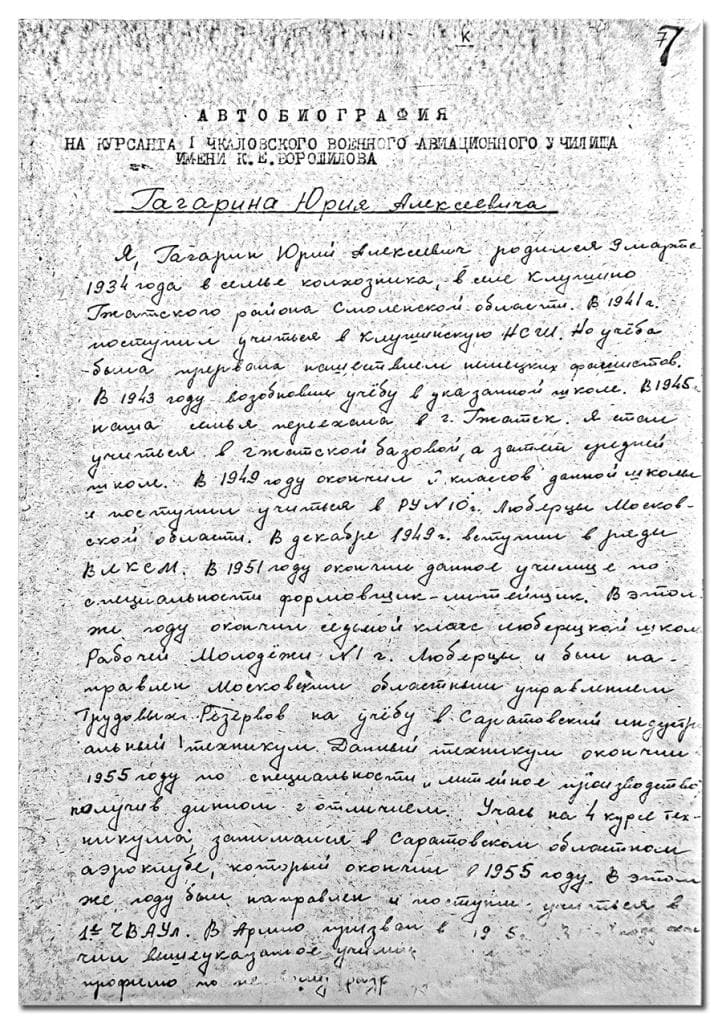 К
7
АВТОБИОГРАФИЯ
НА КУРСАНТА I ЧКАЛОВСКОГО ВОЕННОГО АВИАЦИОННОГО УЧИЛИЩА
ИМЕНИ К.Е.ВОРОШИЛОВА
Гагарина Юрия Алексеевича
Я, Гагарин Юрий Алексеевич родился 9 марта
1934 года в семье колхозника, в селе Клушино
Гжатского района Смоленской области. В 1941 г.
поступил учиться в Клушинскую НСШ. Но учёба
была прервана нашествием немецких фашистов.
В 1943 году возобновил учёбу в указанной школе. В 1945
наша семья переехала в г. Гжатск. Я стал
учиться в гжатской базовой, а затем средней
школе. В 1949 году окончил классов данной школы
и поступил учиться в РУ N10 г. Люберцы Москов-
ской области. В декабре 1949 г. вступил в ряды
ВЛКСМ. В 1951 году окончил данное училище по
специальности формовщик-литейщик. В этом
же году окончил седьмой класс люберецкой школ
Рабочей Молодёжи N1 г. Люберцы и был на-
правлен Московским областным управлением
Трудовых Резервов на учёбу в Саратовский индустри
альный техникум. Данный техникум окончил
1955 году по специальности „литейное производство
получив диплом с отличием. Учась на 4 курсе тех-
никума, занимался в Саратовском областном
аэроклубе, который окончил в 1955 году. В этом
же году был направлен и поступил учиться в
1ое ЧВАУл. В Армию призван в 195
чил вышеуказанное училищ
профилю по